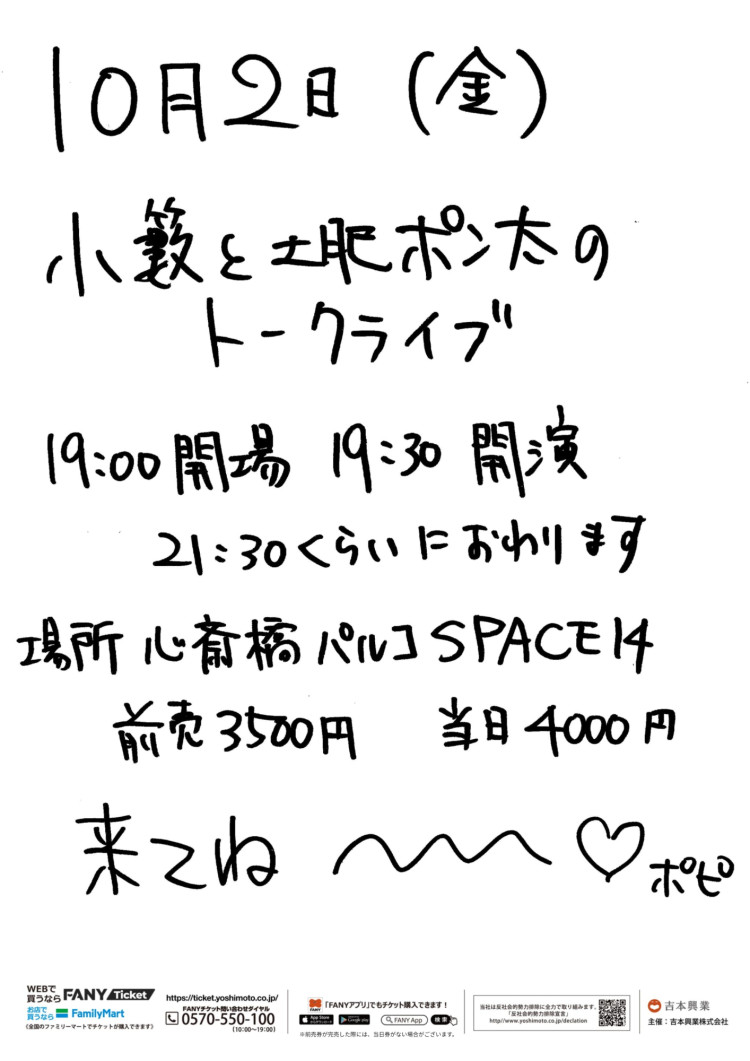 10月2日 (金)
小籔と土肥ポン太の
トークライブ
19:00 開場 19:30 開演
21:30くらいにおわります
場所 心斎橋パルコ SPACE14
前売3500円 当日4000円
来てね 〜〜〜♡ポピ
WEBで買うなら FANY Ticket
お店で買うなら FamilyMart
(全国のファミリーマートでチケットが購入できます)
https://ticket.yoshimoto.co.jp/
FANYチケット問い合わせダイヤル
0570-550-100
(10:00〜19:00)
FANY
「FANYアプリ」でもチケット購入できます!
App Store からダウンロード Google play FANY App 検索
※前売券が完売した際には、当日券がない場合がございます。
当社は反社会的勢力排除に全力で取り組みます。
「反社会的勢力排除宣言」
http://www.yoshimoto.co.jp/declation
吉本興業
主催:吉本興業株式会社